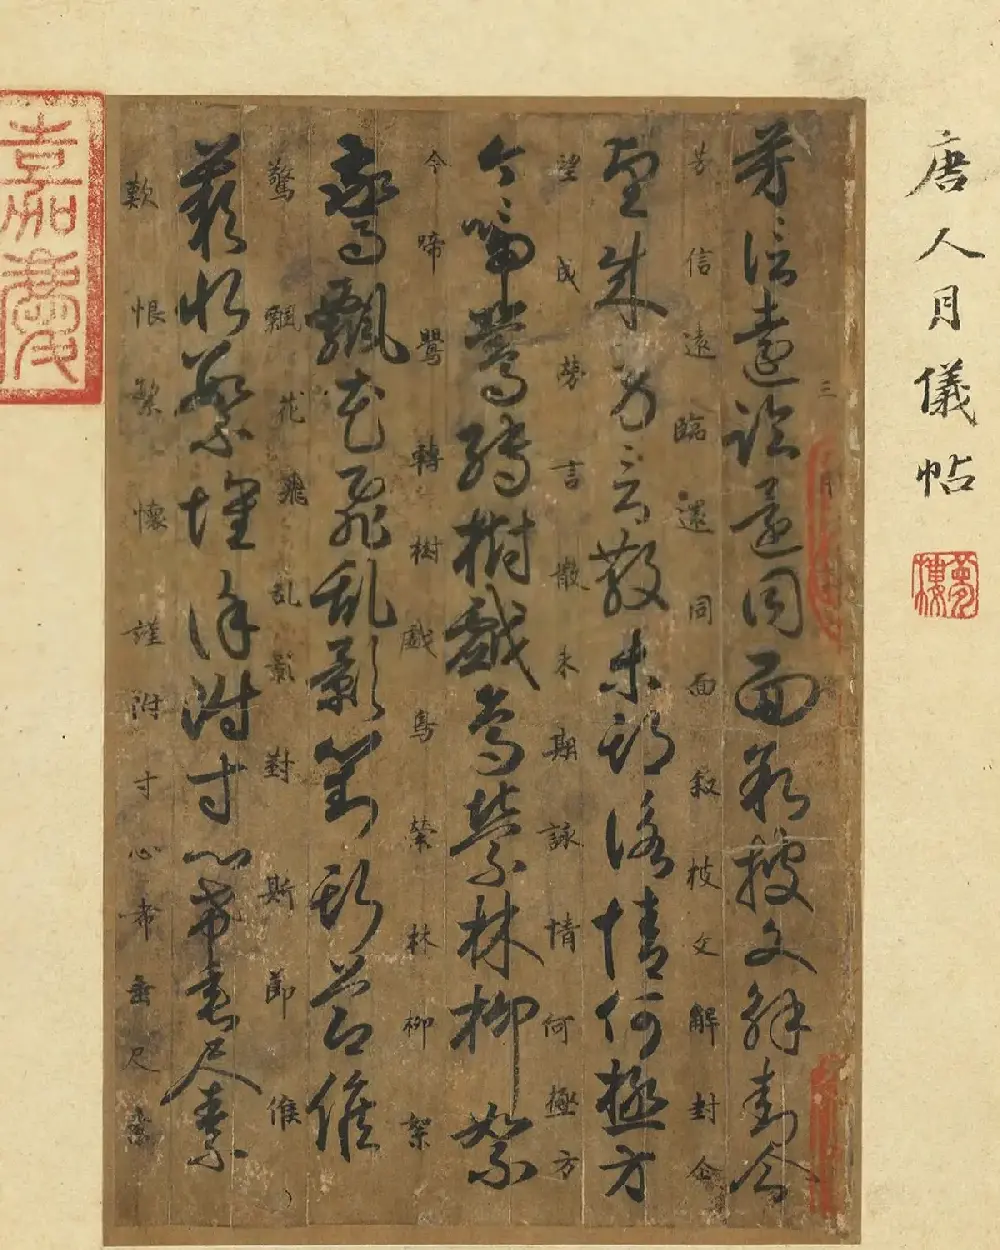 唐人月儀帖
夢樓
三月
芳信遠臨還同面敘披文解封企
芳信遠臨還同面叙披文解封企
望成勞言散未期詠情何極方
望成勞言散未期詠情何極方
今啼鶯轉樹戲鳥縈林柳絮
今啼鶯轉樹戲鳥縈林柳絮
驚飄花飛乱影對斯節候
驚飄花飛乱影對斯節候
歎恨繁懷謹附寸心希垂尺素
歎恨繁懷謹附寸心希垂尺素
嘉慶